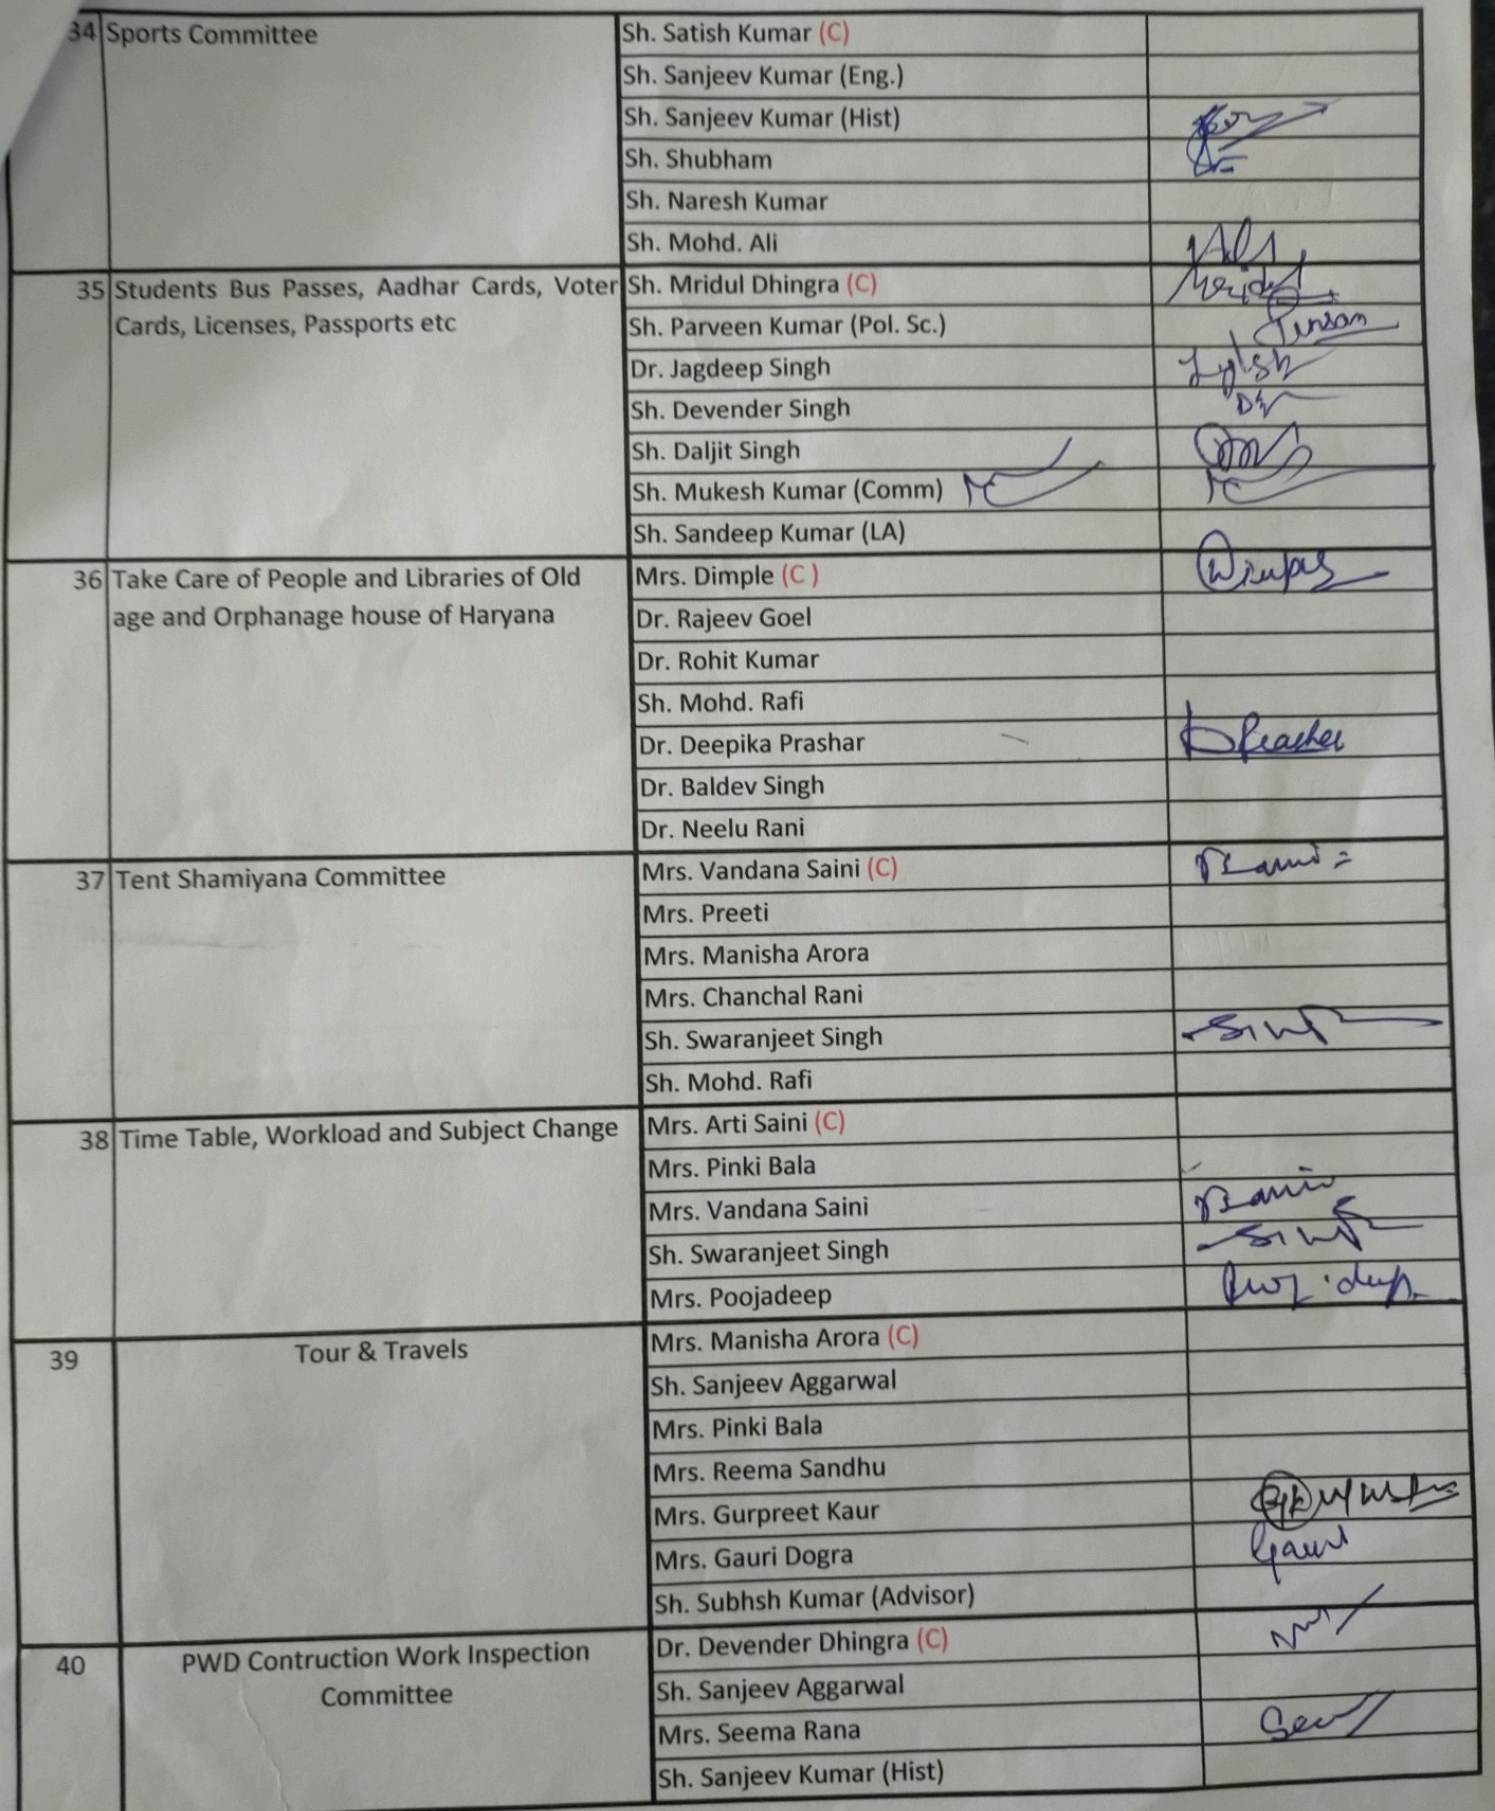 34 Sports Committee Sh. Satish Kumar (C)
Sh. Sanjeev Kumar (Eng.)
Sh. Sanjeev Kumar (Hist)
Sh. Shubham
Sh. Naresh Kumar
Sh. Mohd. Ali
35 Students Bus Passes, Aadhar Cards, Voter Sh. Mridul Dhingra (C)
Cards, Licenses, Passports etc Sh. Parveen Kumar (Pol. Sc.)
Dr. Jagdeep Singh
Sh. Devender Singh
Sh. Daljit Singh
Sh. Mukesh Kumar (Comm)
Sh. Sandeep Kumar (LA)
36 Take Care of People and Libraries of Old Mrs. Dimple (C )
age and Orphanage house of Haryana Dr. Rajeev Goel
Dr. Rohit Kumar
Sh. Mohd. Rafi
Dr. Deepika Prashar
Dr. Baldev Singh
Dr. Neelu Rani
37 Tent Shamiyana Committee Mrs. Vandana Saini (C)
Mrs. Preeti
Mrs. Manisha Arora
Mrs. Chanchal Rani
Sh. Swaranjeet Singh
Sh. Mohd. Rafi
38 Time Table, Workload and Subject Change Mrs. Arti Saini (C)
Mrs. Pinki Bala
Mrs. Vandana Saini
Sh. Swaranjeet Singh
Mrs. Poojadeep
39 Tour & Travels Mrs. Manisha Arora (C)
Sh. Sanjeev Aggarwal
Mrs. Pinki Bala
Mrs. Reema Sandhu
Mrs. Gurpreet Kaur
Mrs. Gauri Dogra Gauri
Sh. Subhsh Kumar (Advisor)
40 PWD Contruction Work Inspection Dr. Devender Dhingra (C)
Committee Sh. Sanjeev Aggarwal
Mrs. Seema Rana
Sh. Sanjeev Kumar (Hist)